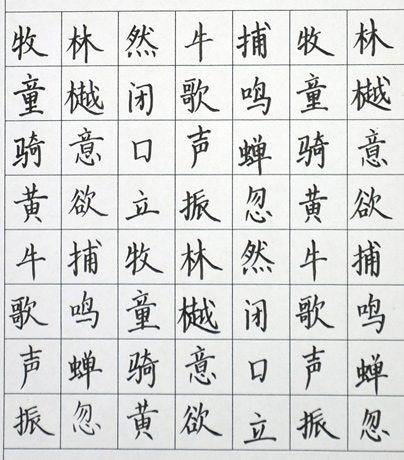 牧童骑黄牛歌声振
林樾意欲捕鸣蝉忽
然闭口立牧童骑黄
牛歌声振林樾意欲
捕鸣蝉忽然闭口立
牧童骑黄牛歌声振
林樾意欲捕鸣蝉忽